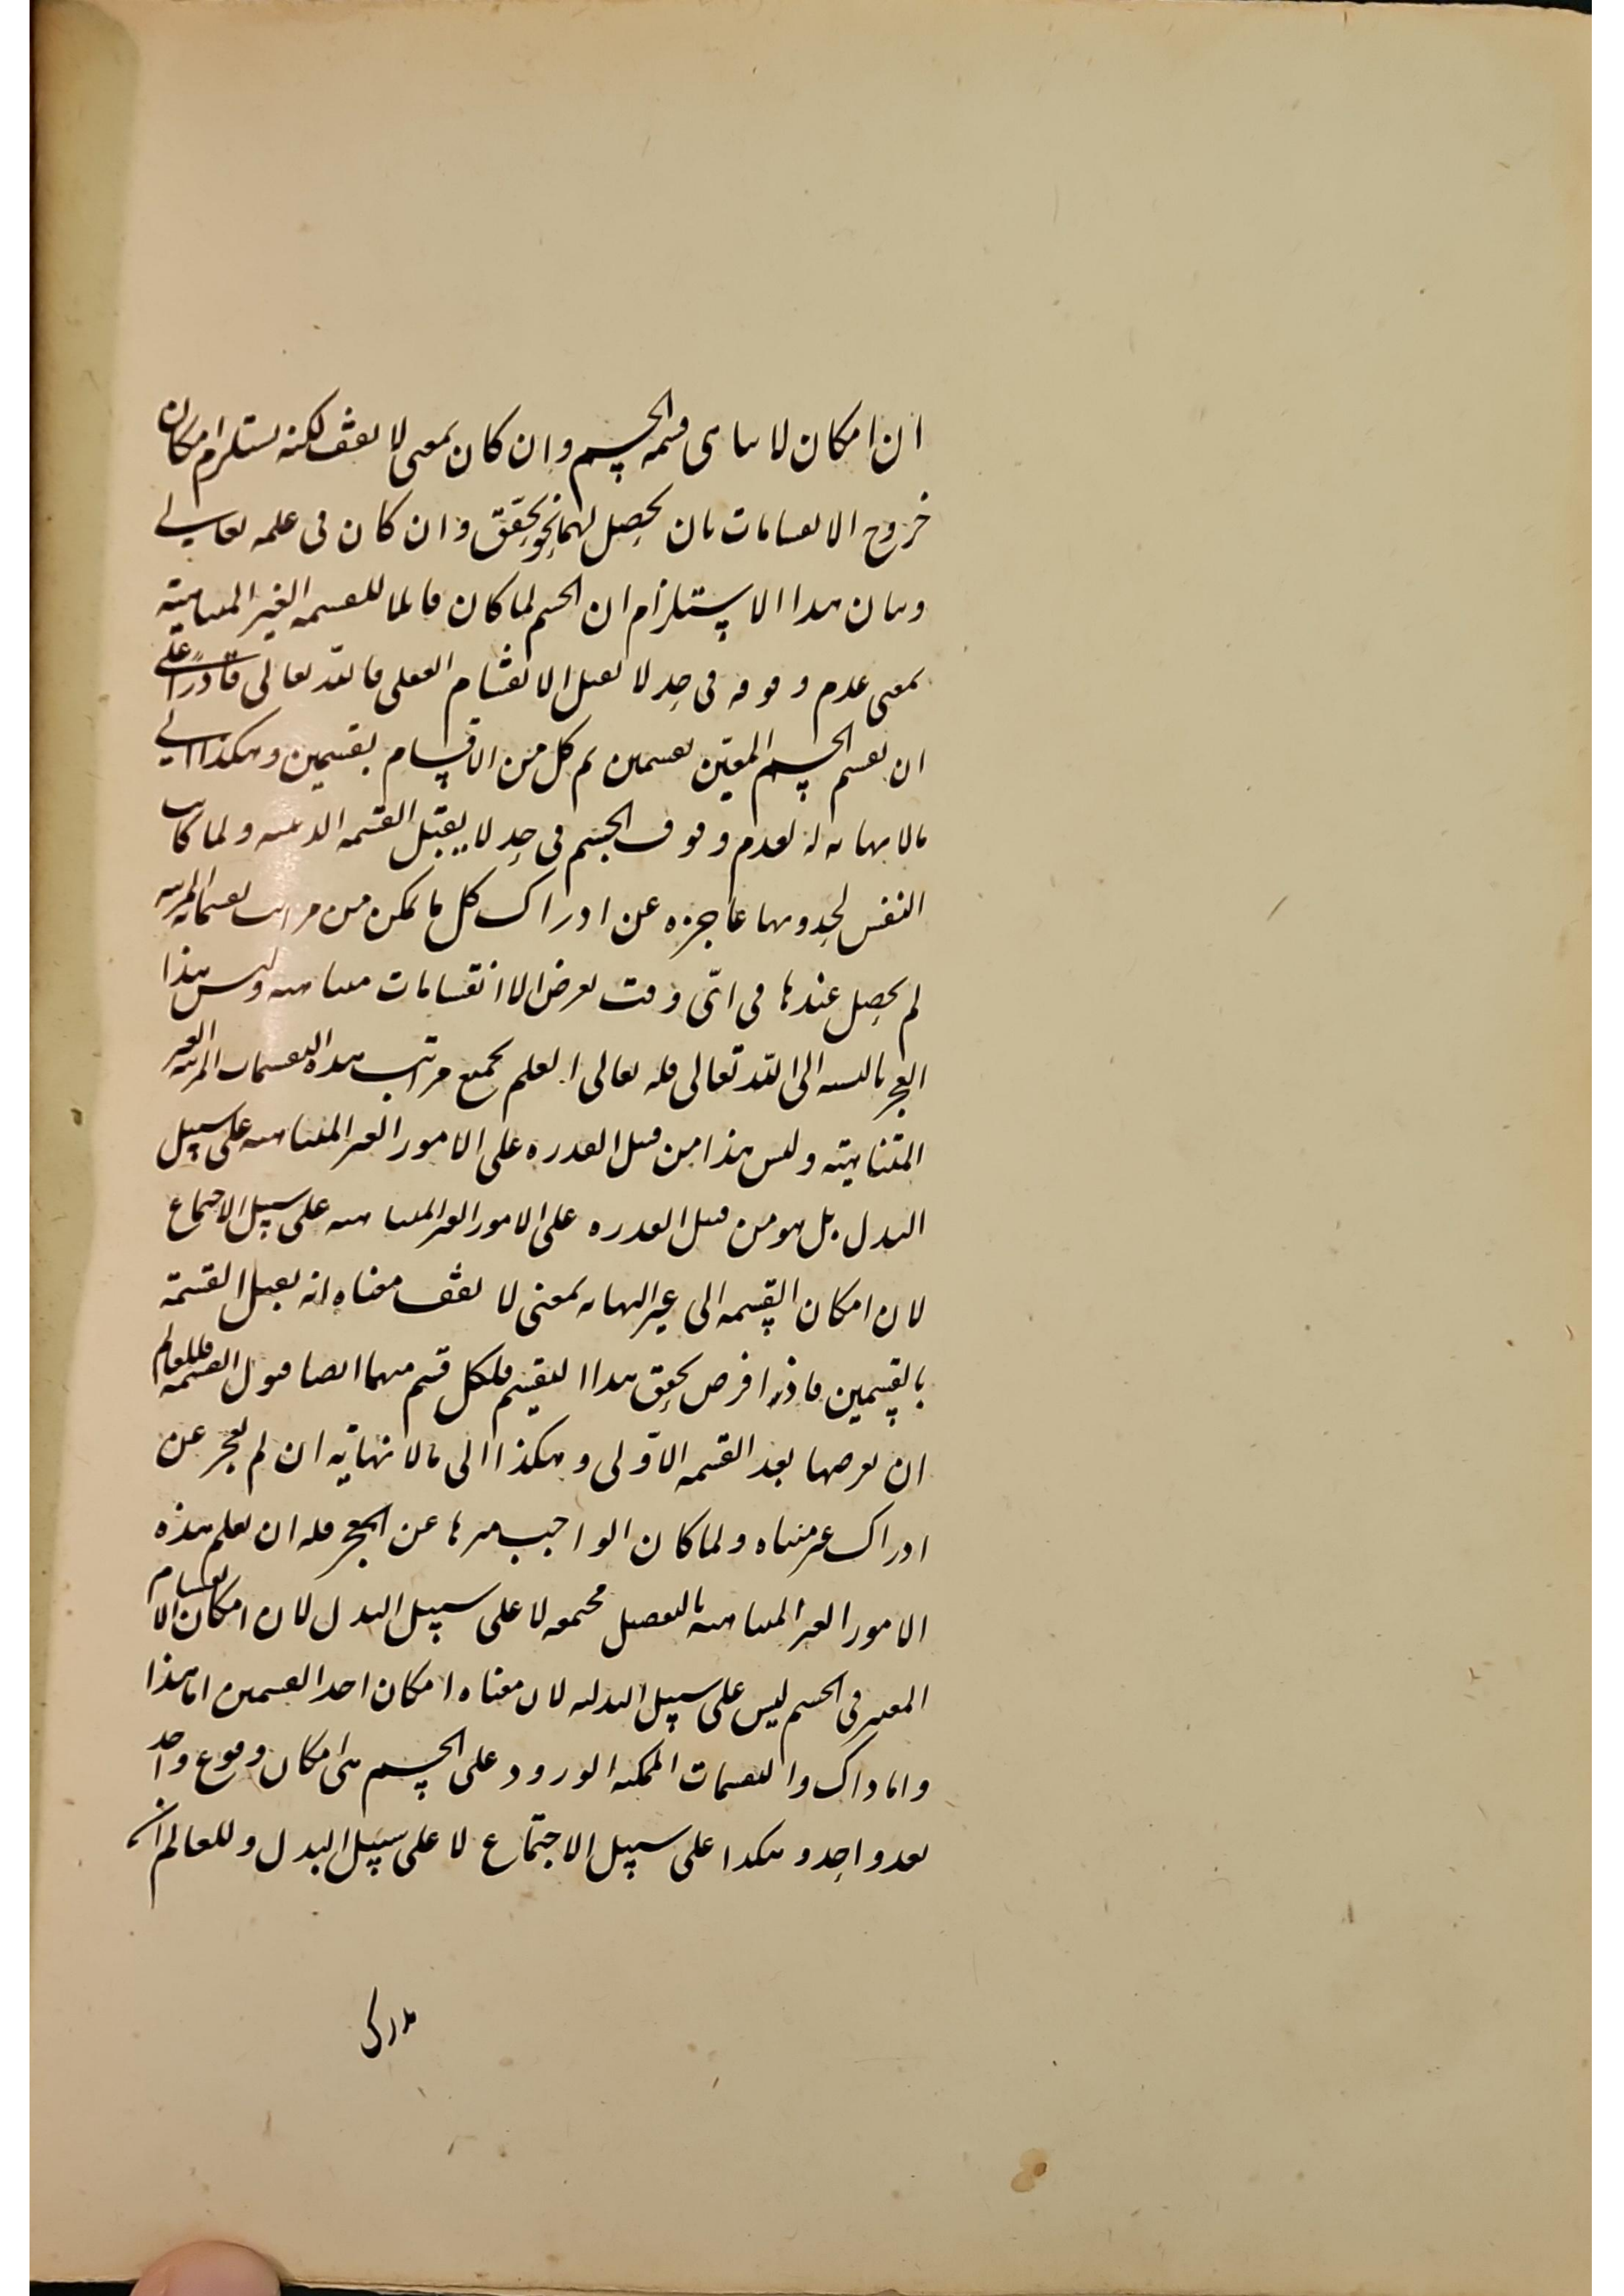 ان امكان لا تناهى قسمة الجسم وان كان بمعنى لا يقف لكنه يستلزم امكان
خروج الانقسامات بان يحصل لهما نحو تحقق وان كان فى علمه تعالى
وبيان هذا الاستلزام ان الجسم لما كان قابلا للقسمة الغير المتناهية
بمعنى عدم وقوفه فى حد لا يقبل الانقسام العقلى فالله تعالى قادرا على
ان يقسم الجسم المعين بقسمين ثم كل من الاقسام بقسمين وهكذا الى
ما لا نهاية له لعدم وقوف الجسم فى حد لا يقبل القسمة الذهنية ولما كان
النفس لحدوثها عاجزة عن ادراك كل ما يمكن من مراتب تقسيماته المترتبة
لم يحصل عندها فى اى وقت يعرض الا انقسامات متناهية وليس هذا
العجز بالنسبة الى الله تعالى فله تعالى العلم بجميع مراتب هذه التقسيمات المترتبة الغير
المتناهية وليس هذا من قبيل القدرة على الامور الغير المتناهية على سبيل
البدل بل هو من قبيل القدرة على الامور الغير المتناهية على سبيل الاجتماع
لان امكان القسمة الى غير النهاية بمعنى لا يقف معناه انه يقبل القسمة
بالقسمين فاذا فرض تحقق هذا التقسيم فلكل قسم منهما ايضا قبول القسمة فللعالم
ان يعرضها بعد القسمة الاولى وهكذا الى ما لا نهاية ان لم يعجز عن
ادراك غير متناه ولما كان الواجب منزها عن العجز فله ان يعلم هذه
الامور الغير المتناهية بالتفصيل مجتمعة لا على سبيل البدل لان امكان الانقسام
المعتبر فى الجسم ليس على سبيل البدلية لان معناه امكان احد القسمين اما هذا
واما ذاك والتقسيمات الممكنة الورود على الجسم هى امكان وقوع واحد
بعد واحد وهكذا على سبيل الاجتماع لا على سبيل البدل وللعالم ان
يدرك